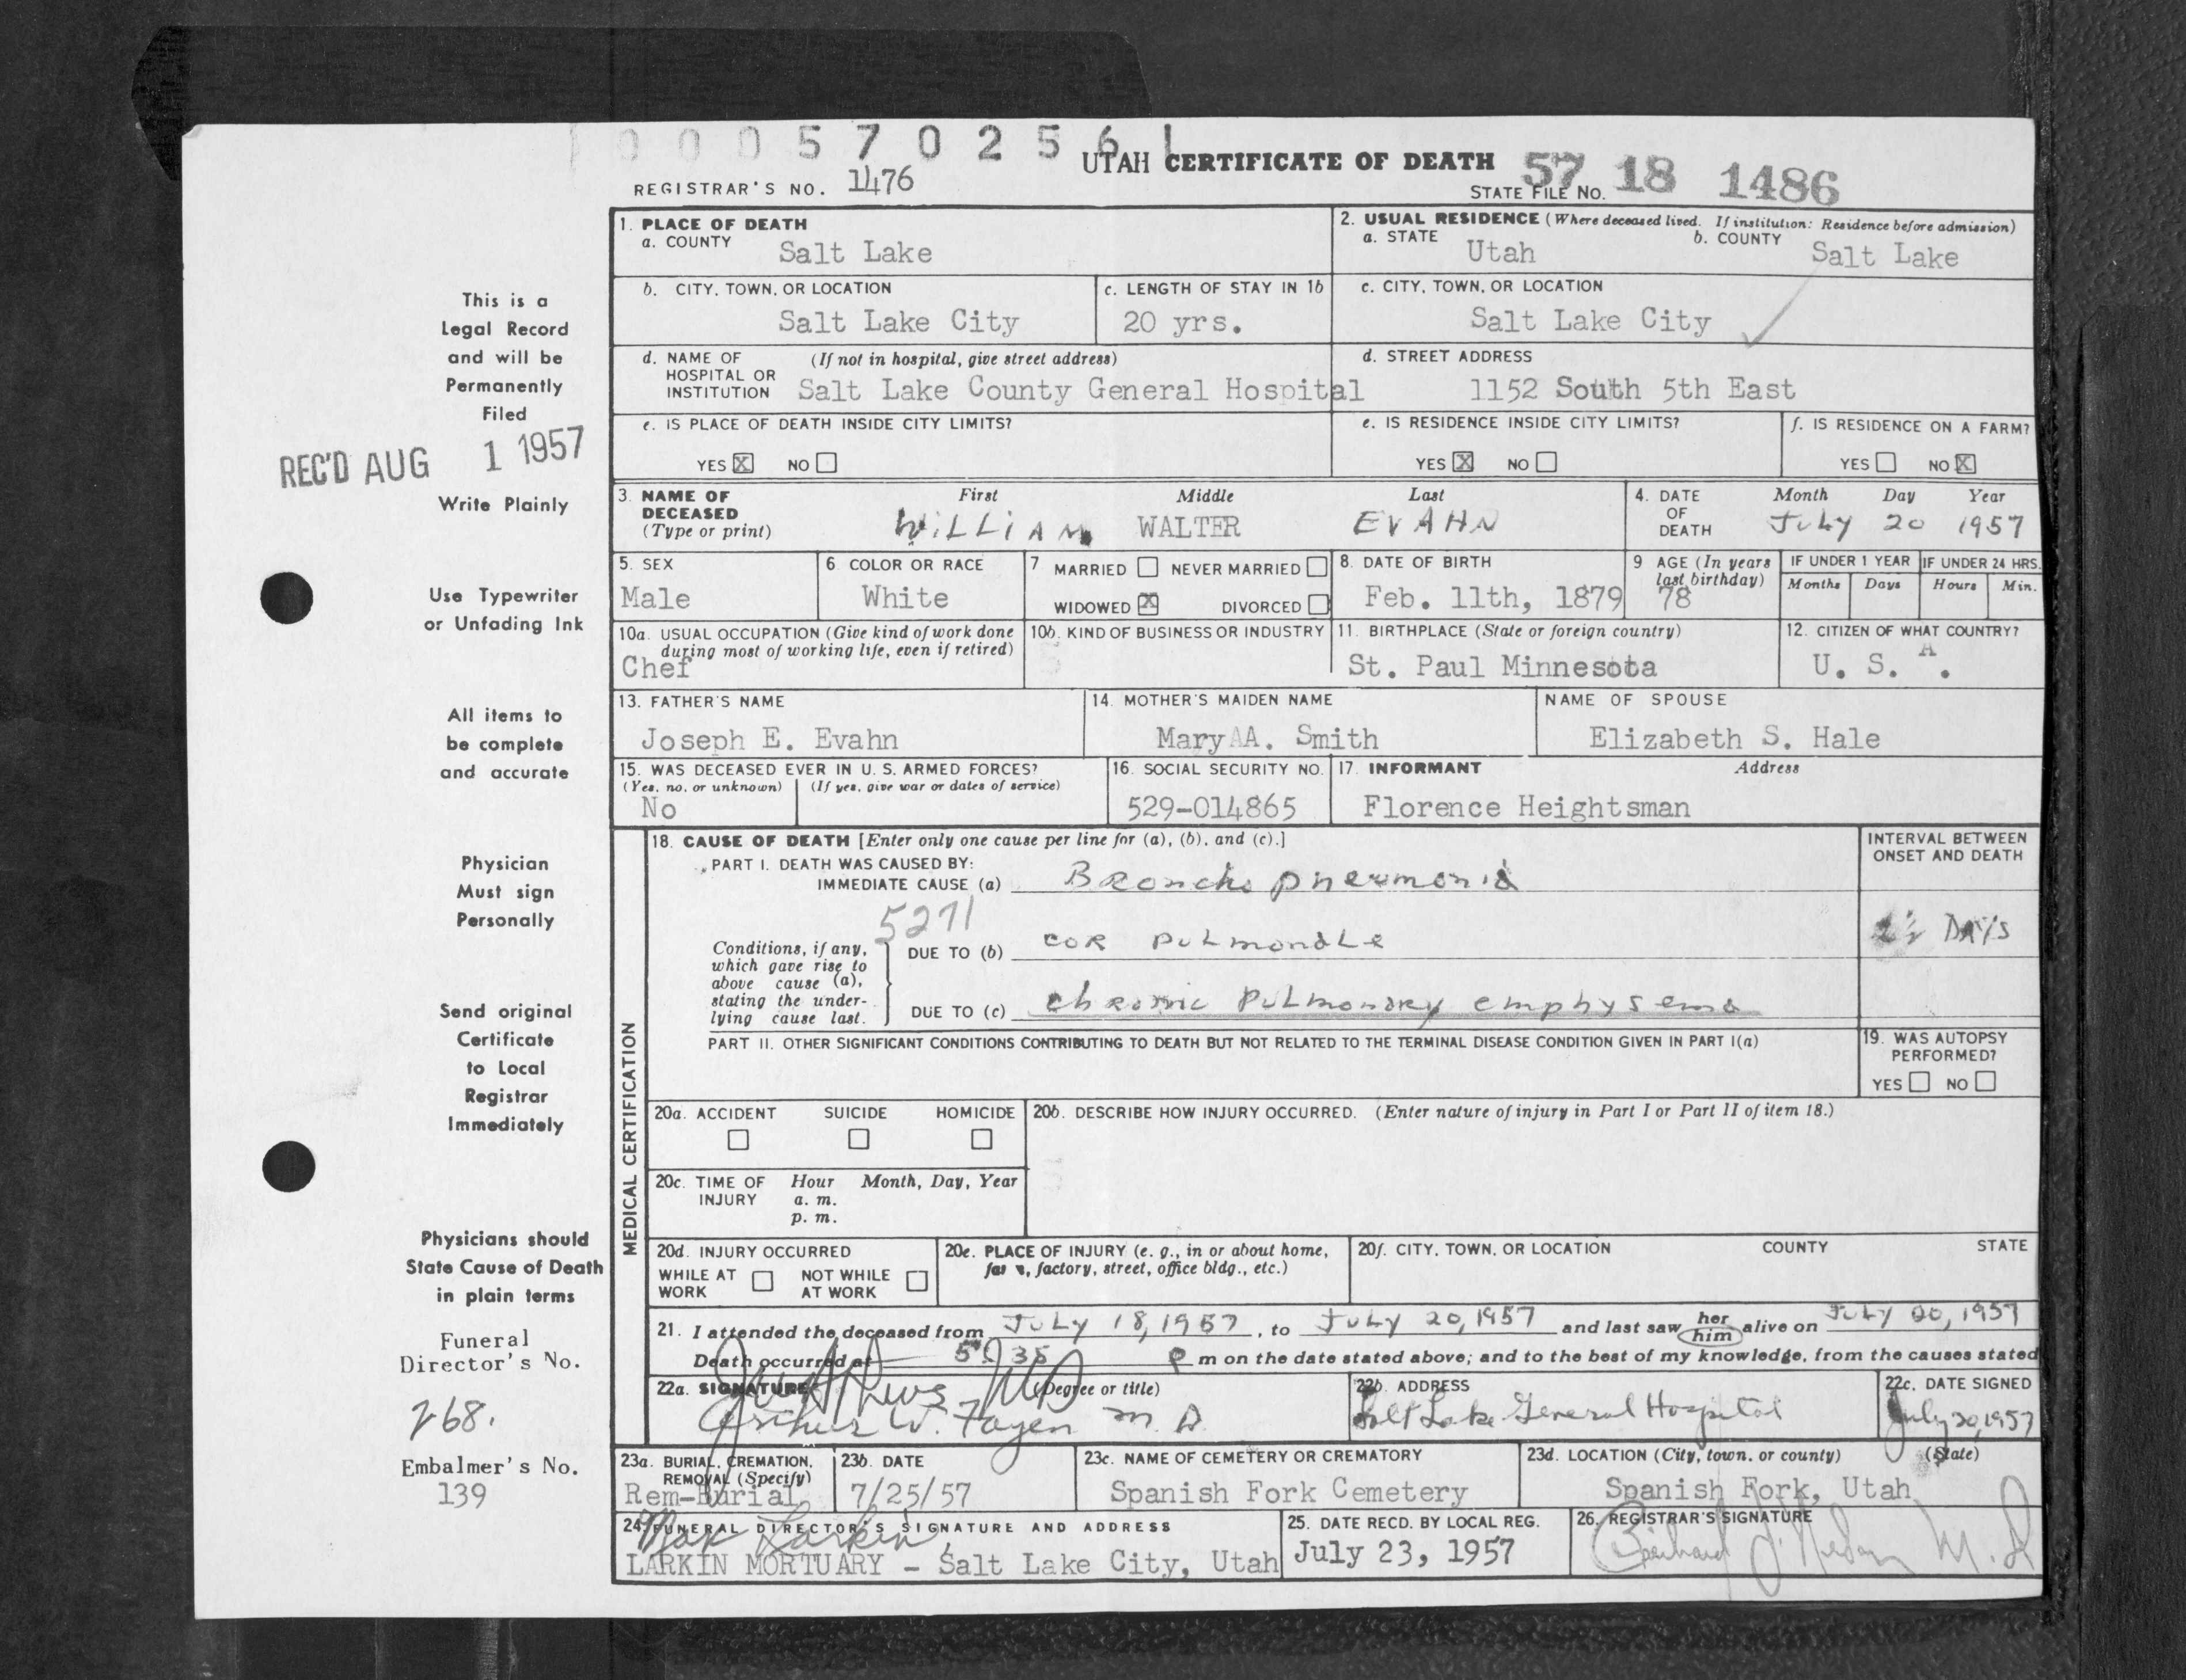 0005702561
UTAH CERTIFICATE OF DEATH
57 18 1486
REGISTRAR'S NO. 1476
STATE FILE NO.
1. PLACE OF DEATH
a. COUNTY Salt Lake
2. USUAL RESIDENCE (Where deceased lived. If institution: Residence before admission)
a. STATE Utah b. COUNTY Salt Lake
b. CITY, TOWN, OR LOCATION Salt Lake City
c. LENGTH OF STAY IN 1b 20 yrs.
c. CITY, TOWN, OR LOCATION Salt Lake City
d. NAME OF HOSPITAL OR INSTITUTION (If not in hospital, give street address) Salt Lake County General Hospital
d. STREET ADDRESS 1152 South 5th East
e. IS PLACE OF DEATH INSIDE CITY LIMITS?
YES X NO
e. IS RESIDENCE INSIDE CITY LIMITS?
YES X NO
f. IS RESIDENCE ON A FARM?
YES NO X
3. NAME OF DECEASED (Type or print)
First Middle Last
WILLIAM WALTER EVAHN
4. DATE OF DEATH
Month Day Year
July 20 1957
5. SEX Male
6. COLOR OR RACE White
7 MARRIED NEVER MARRIED
WIDOWED X DIVORCED
8. DATE OF BIRTH Feb. 11th, 1879
9 AGE (In years last birthday) 78
IF UNDER 1 YEAR
Months Days
IF UNDER 24 HRS.
Hours Min.
10a. USUAL OCCUPATION (Give kind of work done during most of working life, even if retired)
Chef
10b. KIND OF BUSINESS OR INDUSTRY
11. BIRTHPLACE (State or foreign country)
St. Paul Minnesota
12. CITIZEN OF WHAT COUNTRY?
U. S. A.
13. FATHER'S NAME
Joseph E. Evahn
14. MOTHER'S MAIDEN NAME
Mary AA. Smith
NAME OF SPOUSE
Elizabeth S. Hale
15. WAS DECEASED EVER IN U. S. ARMED FORCES?
(Yes, no, or unknown) (If yes, give war or dates of service)
No
16. SOCIAL SECURITY NO.
529-014865
17. INFORMANT Address
Florence Heightsman
MEDICAL CERTIFICATION
18. CAUSE OF DEATH [Enter only one cause per line for (a), (b), and (c).]
INTERVAL BETWEEN ONSET AND DEATH
PART I. DEATH WAS CAUSED BY:
IMMEDIATE CAUSE (a) Broncho pneumonia
5271
Conditions, if any, which gave rise to above cause (a), stating the underlying cause last.
DUE TO (b) cor pulmonale
DAYS
DUE TO (c) chronic pulmonary emphysema
PART II. OTHER SIGNIFICANT CONDITIONS CONTRIBUTING TO DEATH BUT NOT RELATED TO THE TERMINAL DISEASE CONDITION GIVEN IN PART I(a)
19. WAS AUTOPSY PERFORMED?
YES NO
20a. ACCIDENT SUICIDE HOMICIDE
20b. DESCRIBE HOW INJURY OCCURRED. (Enter nature of injury in Part I or Part II of item 18.)
20c. TIME OF INJURY Hour Month, Day, Year
a. m.
p. m.
20d. INJURY OCCURRED
WHILE AT WORK NOT WHILE AT WORK
20e. PLACE OF INJURY (e. g., in or about home, farm, factory, street, office bldg., etc.)
20f. CITY, TOWN, OR LOCATION COUNTY STATE
21. I attended the deceased from July 18, 1957, to July 20, 1957 and last saw her him alive on July 20, 1957
Death occurred at 5:35 P m on the date stated above; and to the best of my knowledge, from the causes stated
22a. SIGNATURE (Degree or title)
Arthur W. Fagen M. D.
22b. ADDRESS
Salt Lake General Hospital
22c. DATE SIGNED
July 20, 1957
23a. BURIAL, CREMATION, REMOVAL (Specify)
Rem-Burial
23b. DATE
7/25/57
23c. NAME OF CEMETERY OR CREMATORY
Spanish Fork Cemetery
23d. LOCATION (City, town, or county) (State)
Spanish Fork, Utah
24. FUNERAL DIRECTOR'S SIGNATURE AND ADDRESS
Max Larkin
LARKIN MORTUARY - Salt Lake City, Utah
25. DATE RECD. BY LOCAL REG.
July 23, 1957
26. REGISTRAR'S SIGNATURE
M. D
This is a
Legal Record
and will be
Permanently
Filed
REC'D AUG 1 1957
Write Plainly
Use Typewriter
or Unfading Ink
All items to
be complete
and accurate
Physician
Must sign
Personally
Send original
Certificate
to Local
Registrar
Immediately
Physicians should
State Cause of Death
in plain terms
Funeral
Director's No.
268.
Embalmer's No.
139